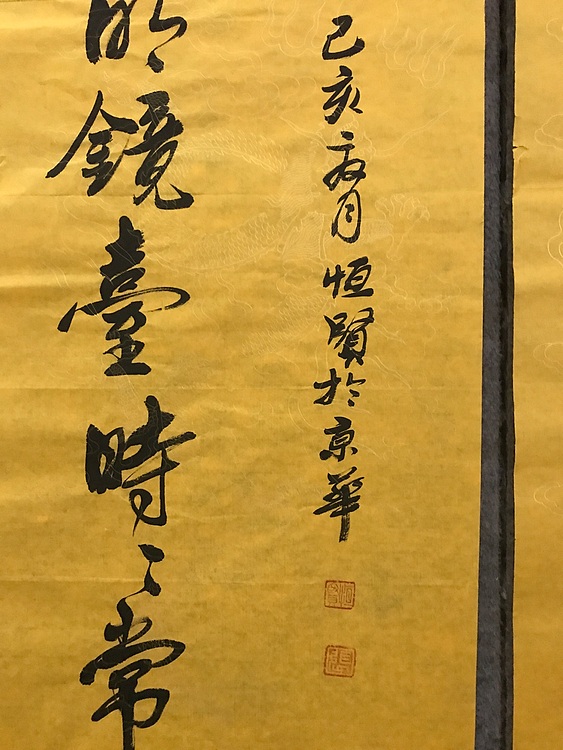 明鏡臺時〻常
己亥夏月恒賢於京華